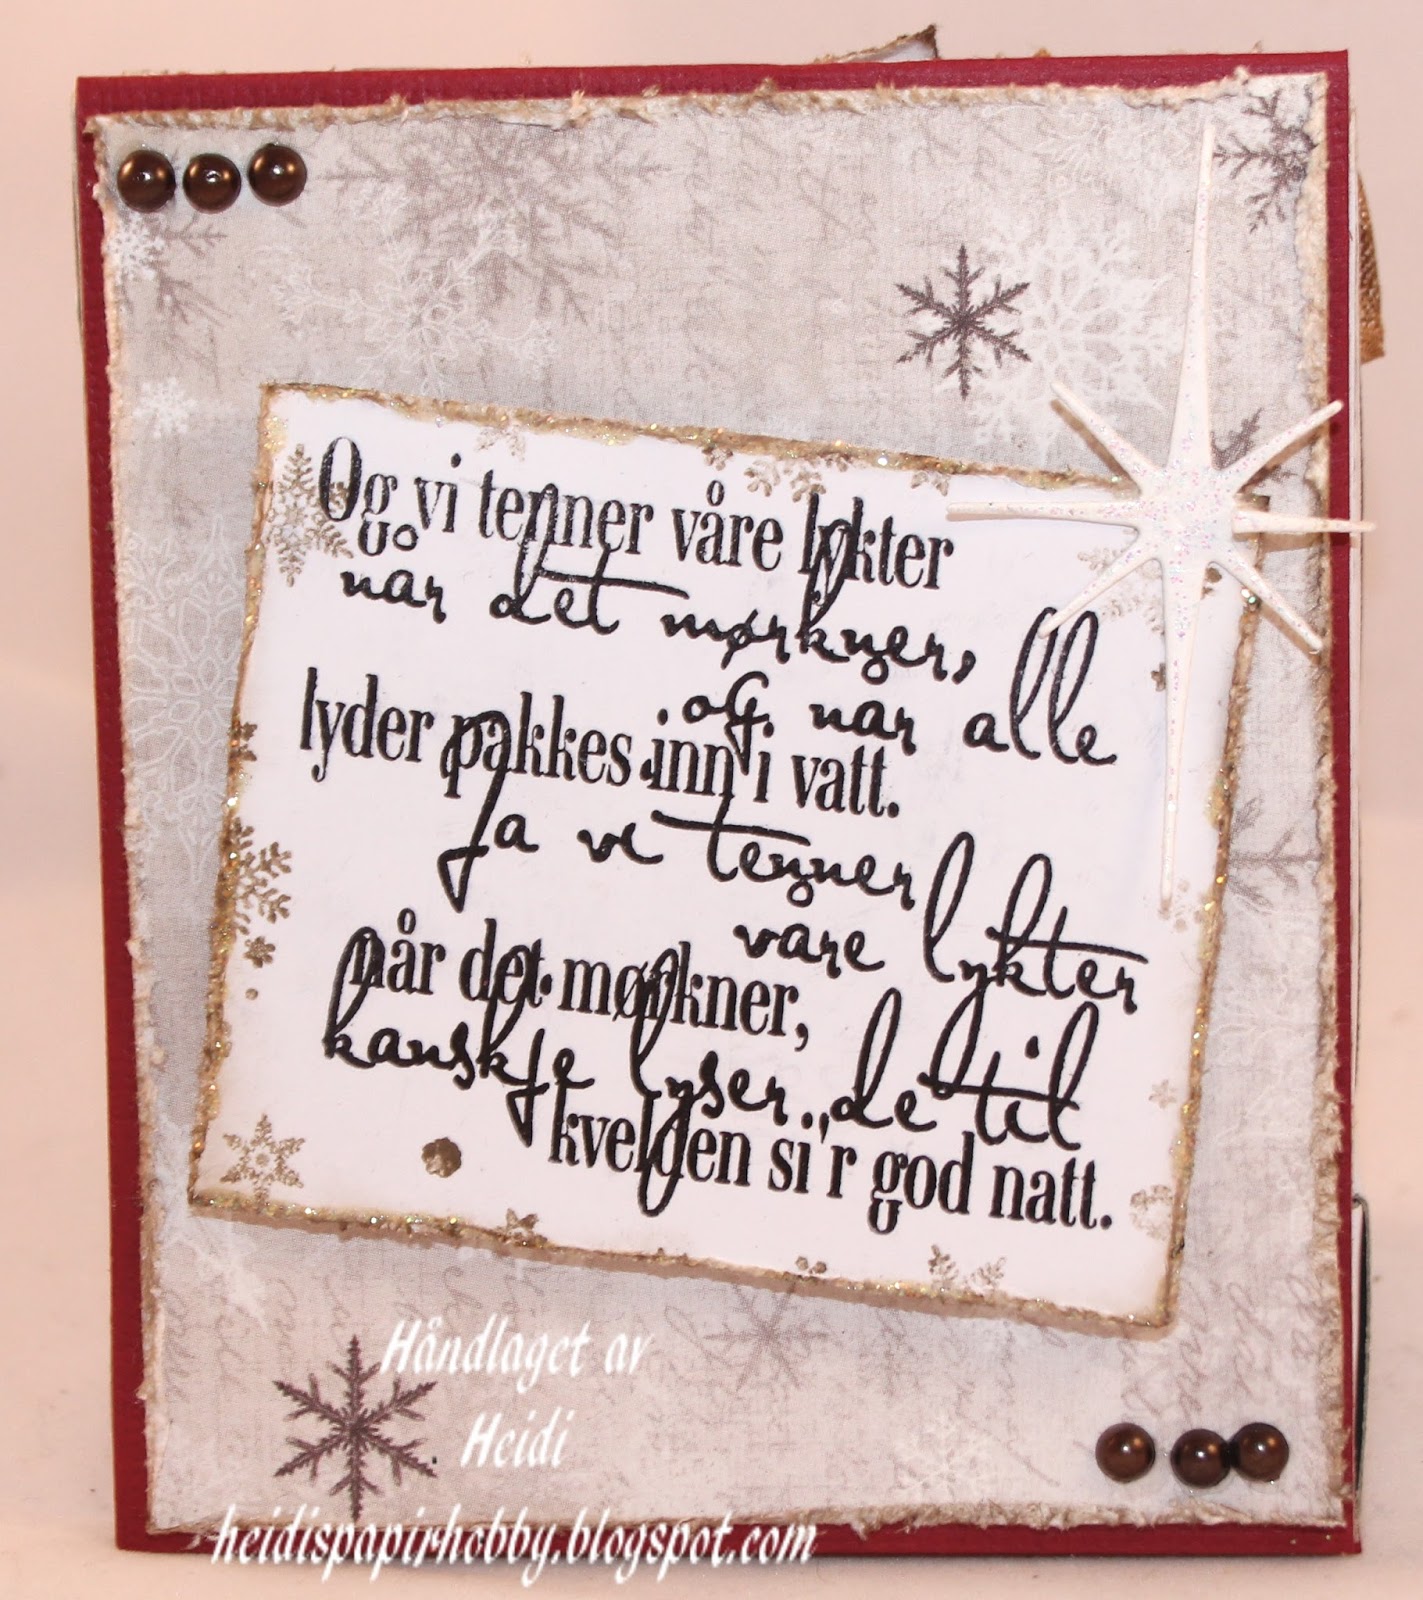 Og vi tenner våre lykter
når det mørkner,
og når alle
lyder pakkes inn i vatt.
Ja vi tenner
våre lykter
når det mørkner,
kanskje lyser de til
kvelden si'r god natt.
Håndlaget av
Heidi
heidispapirhobby.blogspot.com